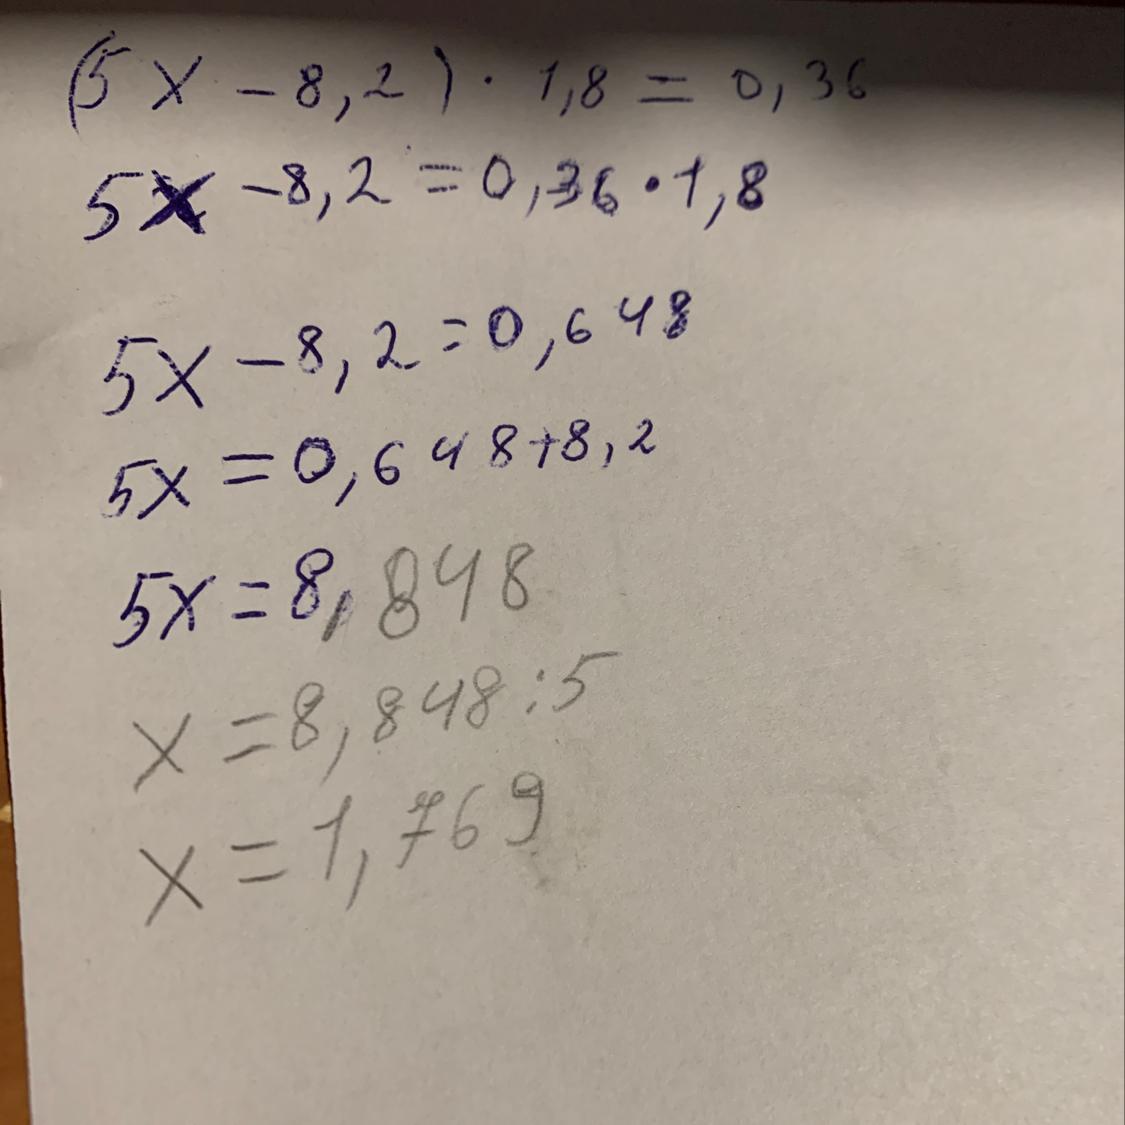 (5x - 8,2) · 1,8 = 0,36
5x - 8,2 = 0,36 · 1,8
5x - 8,2 = 0,648
5x = 0,648 + 8,2
5x = 8,848
x = 8,848 : 5
x = 1,769